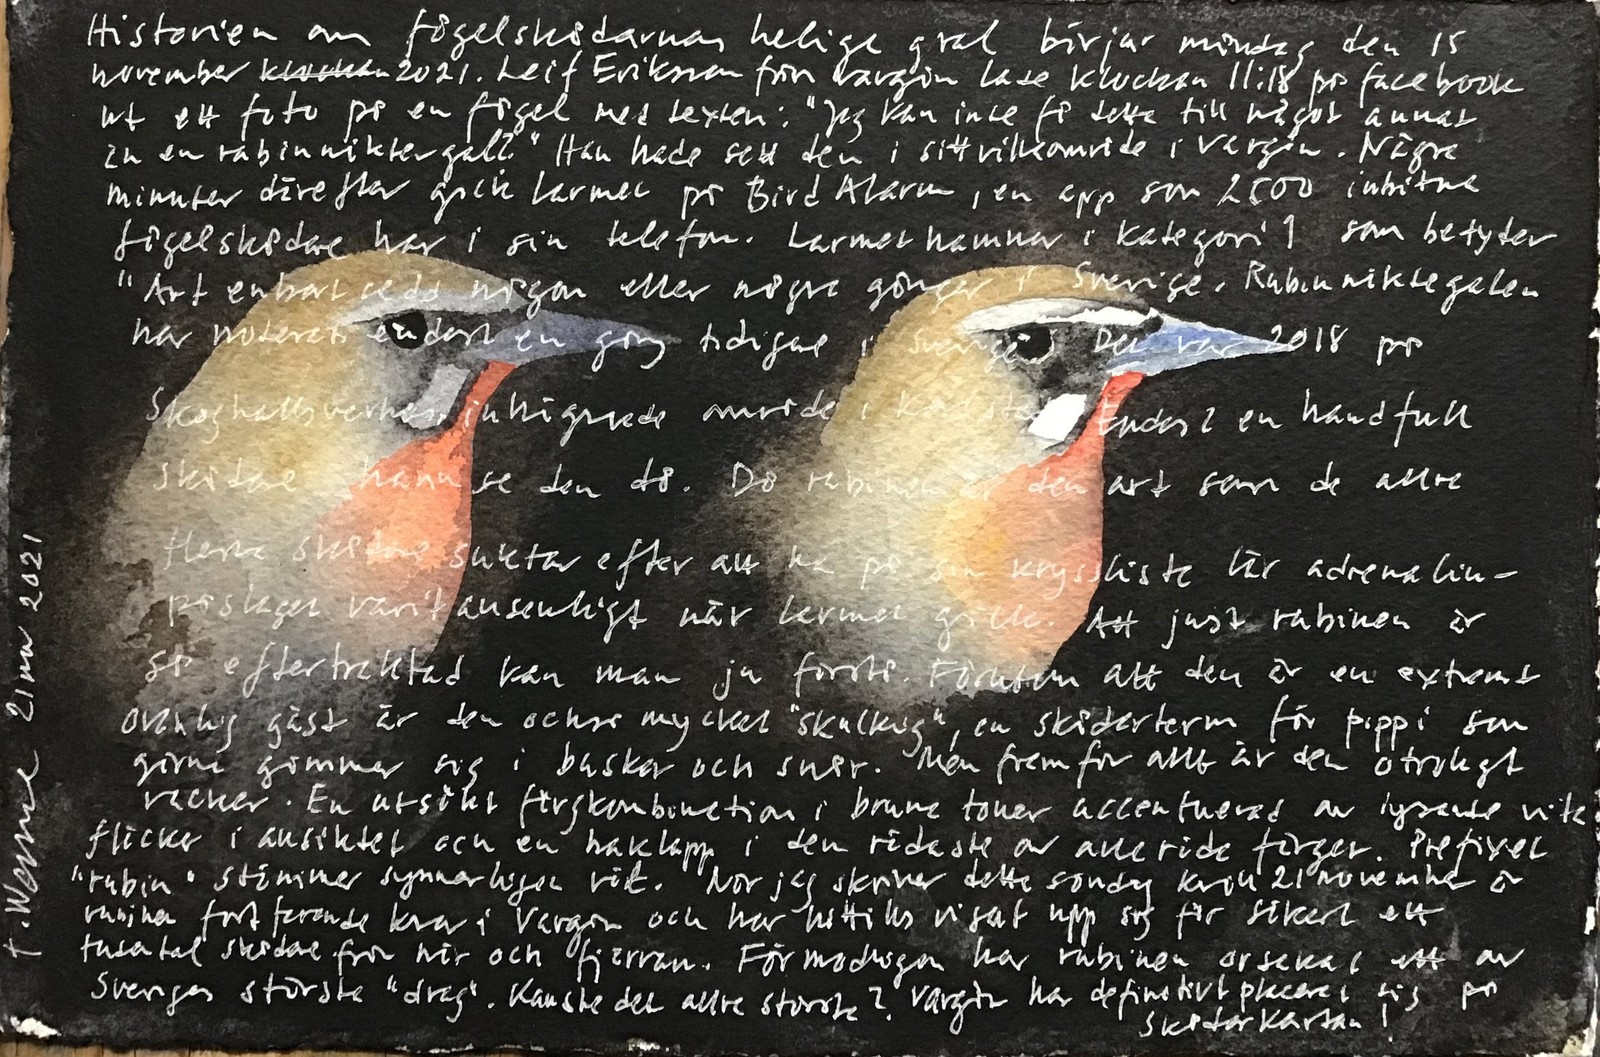 Historien om fågelskådarnas helige gral börjar måndag den 15
november klockan 2021. Leif Eriksson från Vargön lade klockan 11:18 på facebook
ut ett foto på en fågel med texten: "Jag kan inte få detta till något annat
än en rubinnäktergall." Han hade sett den i sitt villaområde i Vargön. Några
minuter därefter gick larmet på Bird Alarm, en app som 2500 inbitna
fågelskådare har i sin telefon. Larmet hamnar i kategori 1 som betyder
"Art enbart sedd någon eller några gånger i Sverige. Rubinnäktegalen
har noterats endast en gång tidigare i Sverige. Det var 2018 på
Skoghallsverkens inhägnade område i Karlstad. Endast en handfull
skådare hann se den då. Då rubinen är den art som de allra
flesta skådare suktar efter att ha på sin krysslista lär adrenalin-
påslaget varit ansenligt när larmet gick. Att just rubinen är
så eftertraktad kan man ju förstå. Förutom att den är en extremt
ovanlig gäst är den också mycket "skulkig", en skådarterm för pippi som
gärna gömmer sig i buskar och snår. Men framför allt är den otroligt
vacker. En utsökt färgkombination i bruna toner accentuerad av lysande vita
fläckar i ansiktet och en haklapp i den rödaste av alla röda färger. Prefixet
"rubin" stämmer synnerligen väl. När jag skriver detta söndag kväll 21 november är
rubinen fortfarande kvar i Vargön och har hittills visat upp sig för säkert ett
tusental skådare från när och fjärran. Förmodligen har rubinen orsakat ett av
Sveriges största "drag". Kanske det allra största? Vargön har definitivt placerat sig på
skådarkartan!
T. Wærne 21 nov 2021